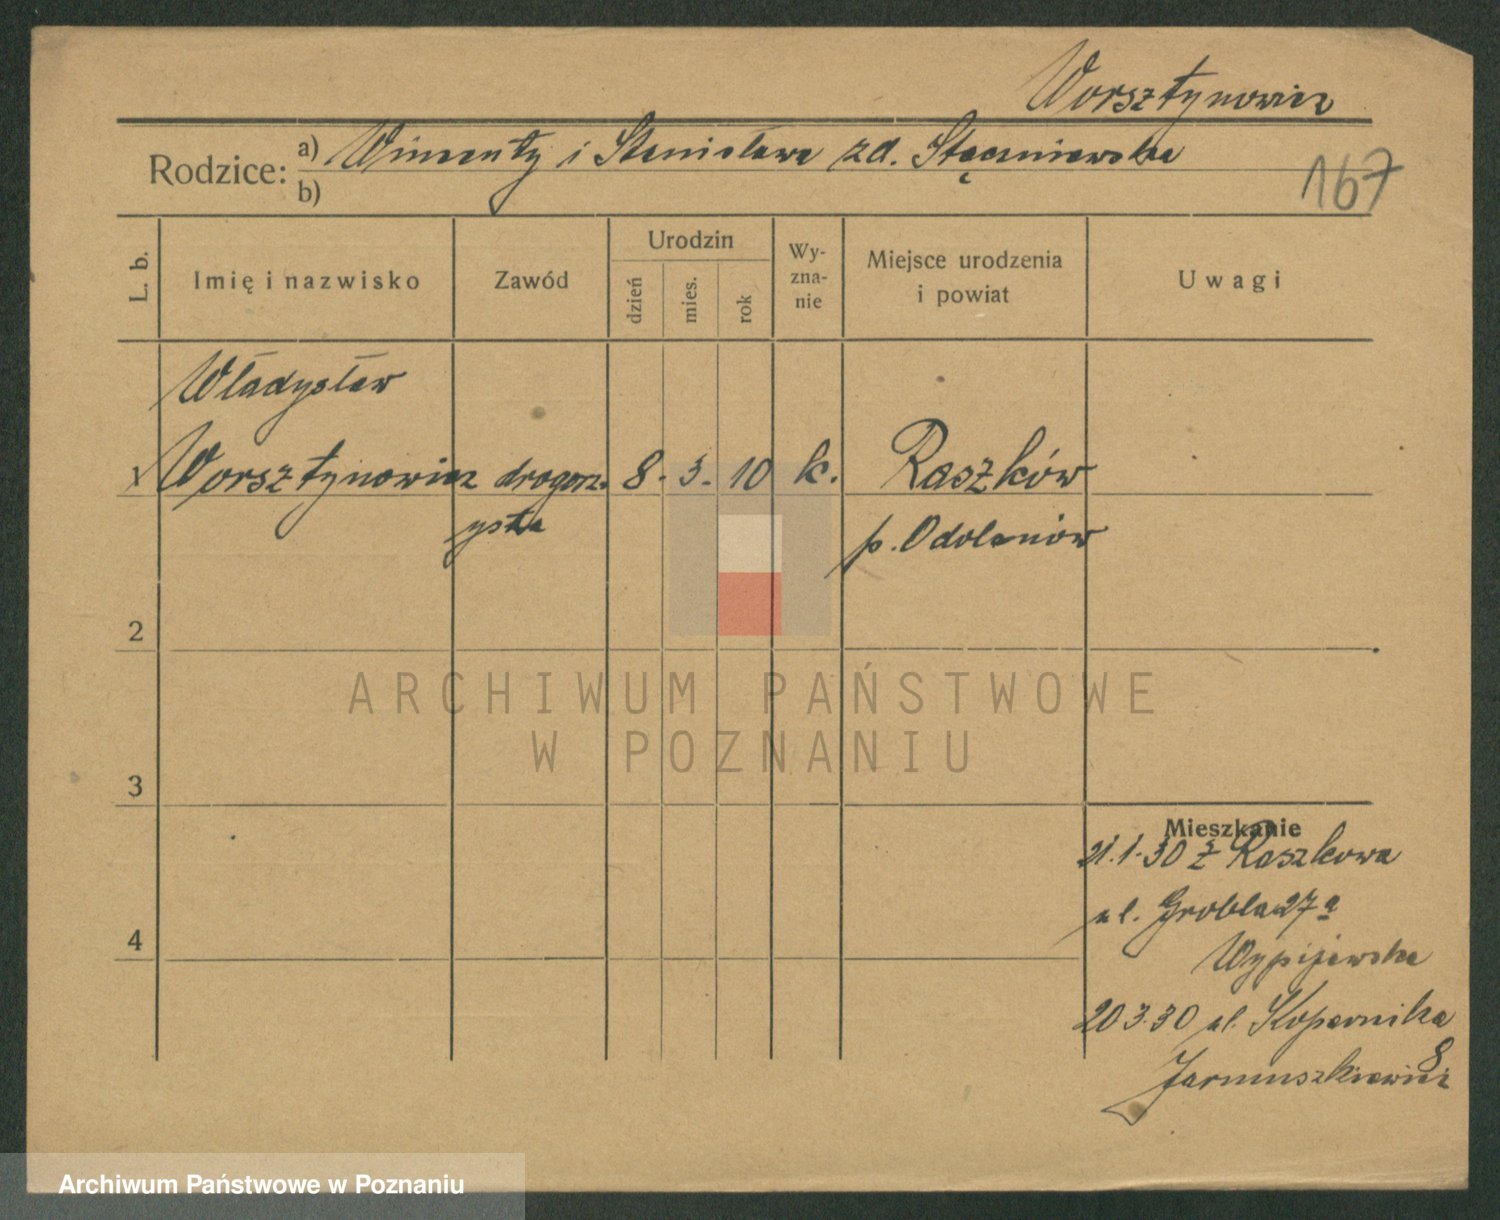 Worsztynowicz
Rodzice:
a) Wincenty i Stanisława zd. Stęczniewska
b)
167
L. b.
Imię i nazwisko
Zawód
Urodzin
dzień
mies.
rok
Wy-
zna-
nie
Miejsce urodzenia
i powiat
Uwagi
Władysław
1 Worsztynowicz drogerz- 8. 3. 10 k. Raszków
ysta p. Odolanów
2
ARCHIWUM PAŃSTWOWE
W POZNANIU
3
Mieszkanie
21.1.30 z Raszkowa
ul. Grobla 27a
4
Wypijewska
20 3.30 ul. Kopernika
8
Jarmuszkiewicz
Archiwum Państwowe w Poznaniu